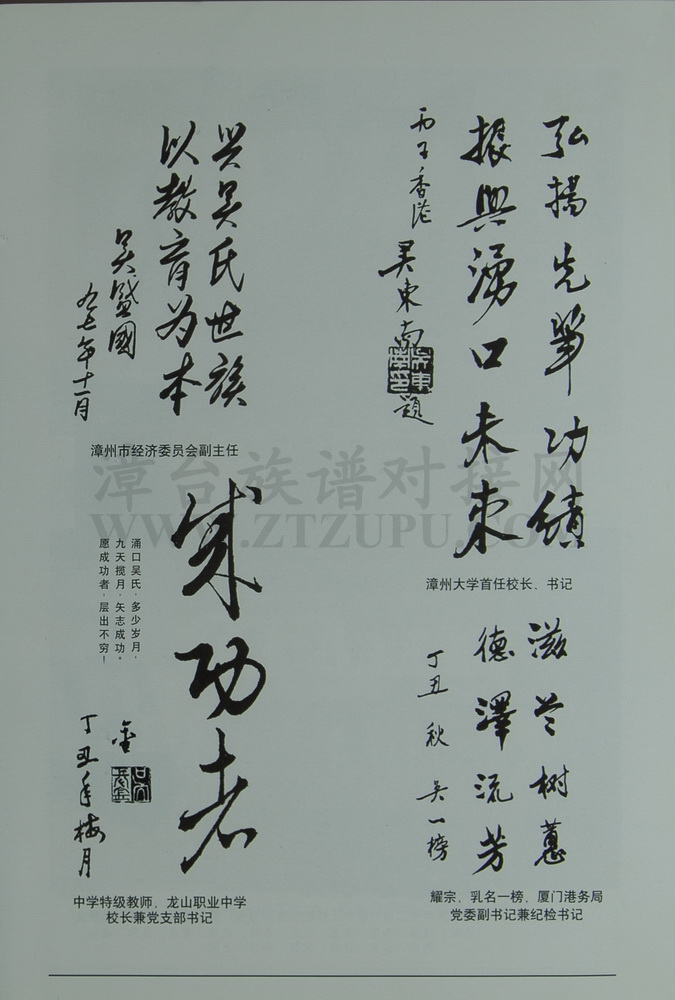 弘扬先辈功绩
振興湧口未来
丙子香港
吴東南
题
漳州大学首任校长、书记
兴吴氏世族
以教育为本
吴盛國
九七年十一月
漳州市经济委员会副主任
漳台族谱对接网
WWW.ZTZUPU.COM
滋兰树蕙
德澤流芳
丁丑秋 吴一榜
耀宗、乳名一榜、厦门港务局
党委副书记兼纪检书记
成功者
涌口吴氏·多少岁月·
九天揽月·矢志成功。
愿成功者·层出不穷！
丁丑年梅月
中学特级教师、龙山职业中学
校长兼党支部书记